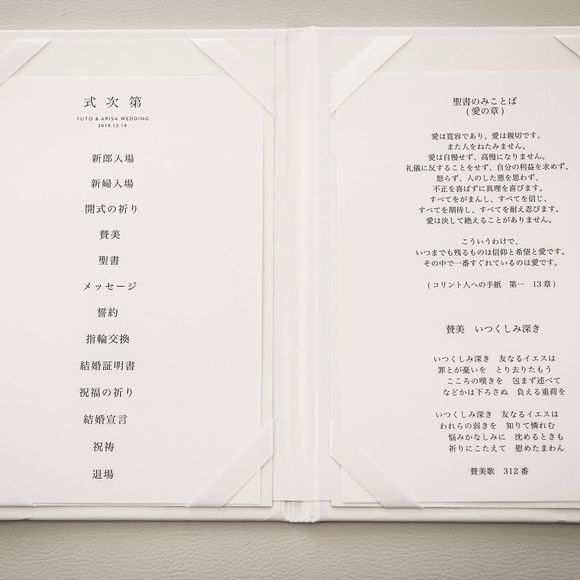 式次第
YUTO & ARISA WEDDING
2019.12.14
新郎入場
新婦入場
開式の祈り
賛美
聖書
メッセージ
誓約
指輪交換
結婚証明書
祝福の祈り
結婚宣言
祝祷
退場
聖書のみことば
(愛の章)
愛は寛容であり、愛は親切です。
また人をねたみません。
愛は自慢せず、高慢になりません。
礼儀に反することをせず、自分の利益を求めず、
怒らず、人のした悪を思わず、
不正を喜ばずに真理を喜びます。
すべてをがまんし、すべてを信じ、
すべてを期待し、すべてを耐え忍びます。
愛は決して絶えることがありません。
こういうわけで、
いつまでも残るものは信仰と希望と愛です。
その中で一番すぐれているのは愛です。
(コリント人への手紙 第一 13章)
賛美 いつくしみ深き
いつくしみ深き 友なるイエスは
罪とが憂いを とり去りたもう
こころの嘆きを 包まず述べて
などかは下ろさぬ 負える重荷を
いつくしみ深き 友なるイエスは
われらの弱きを 知りて憐れむ
悩みかなしみに 沈めるときも
祈りにこたえて 慰めたまわん
賛美歌 312番